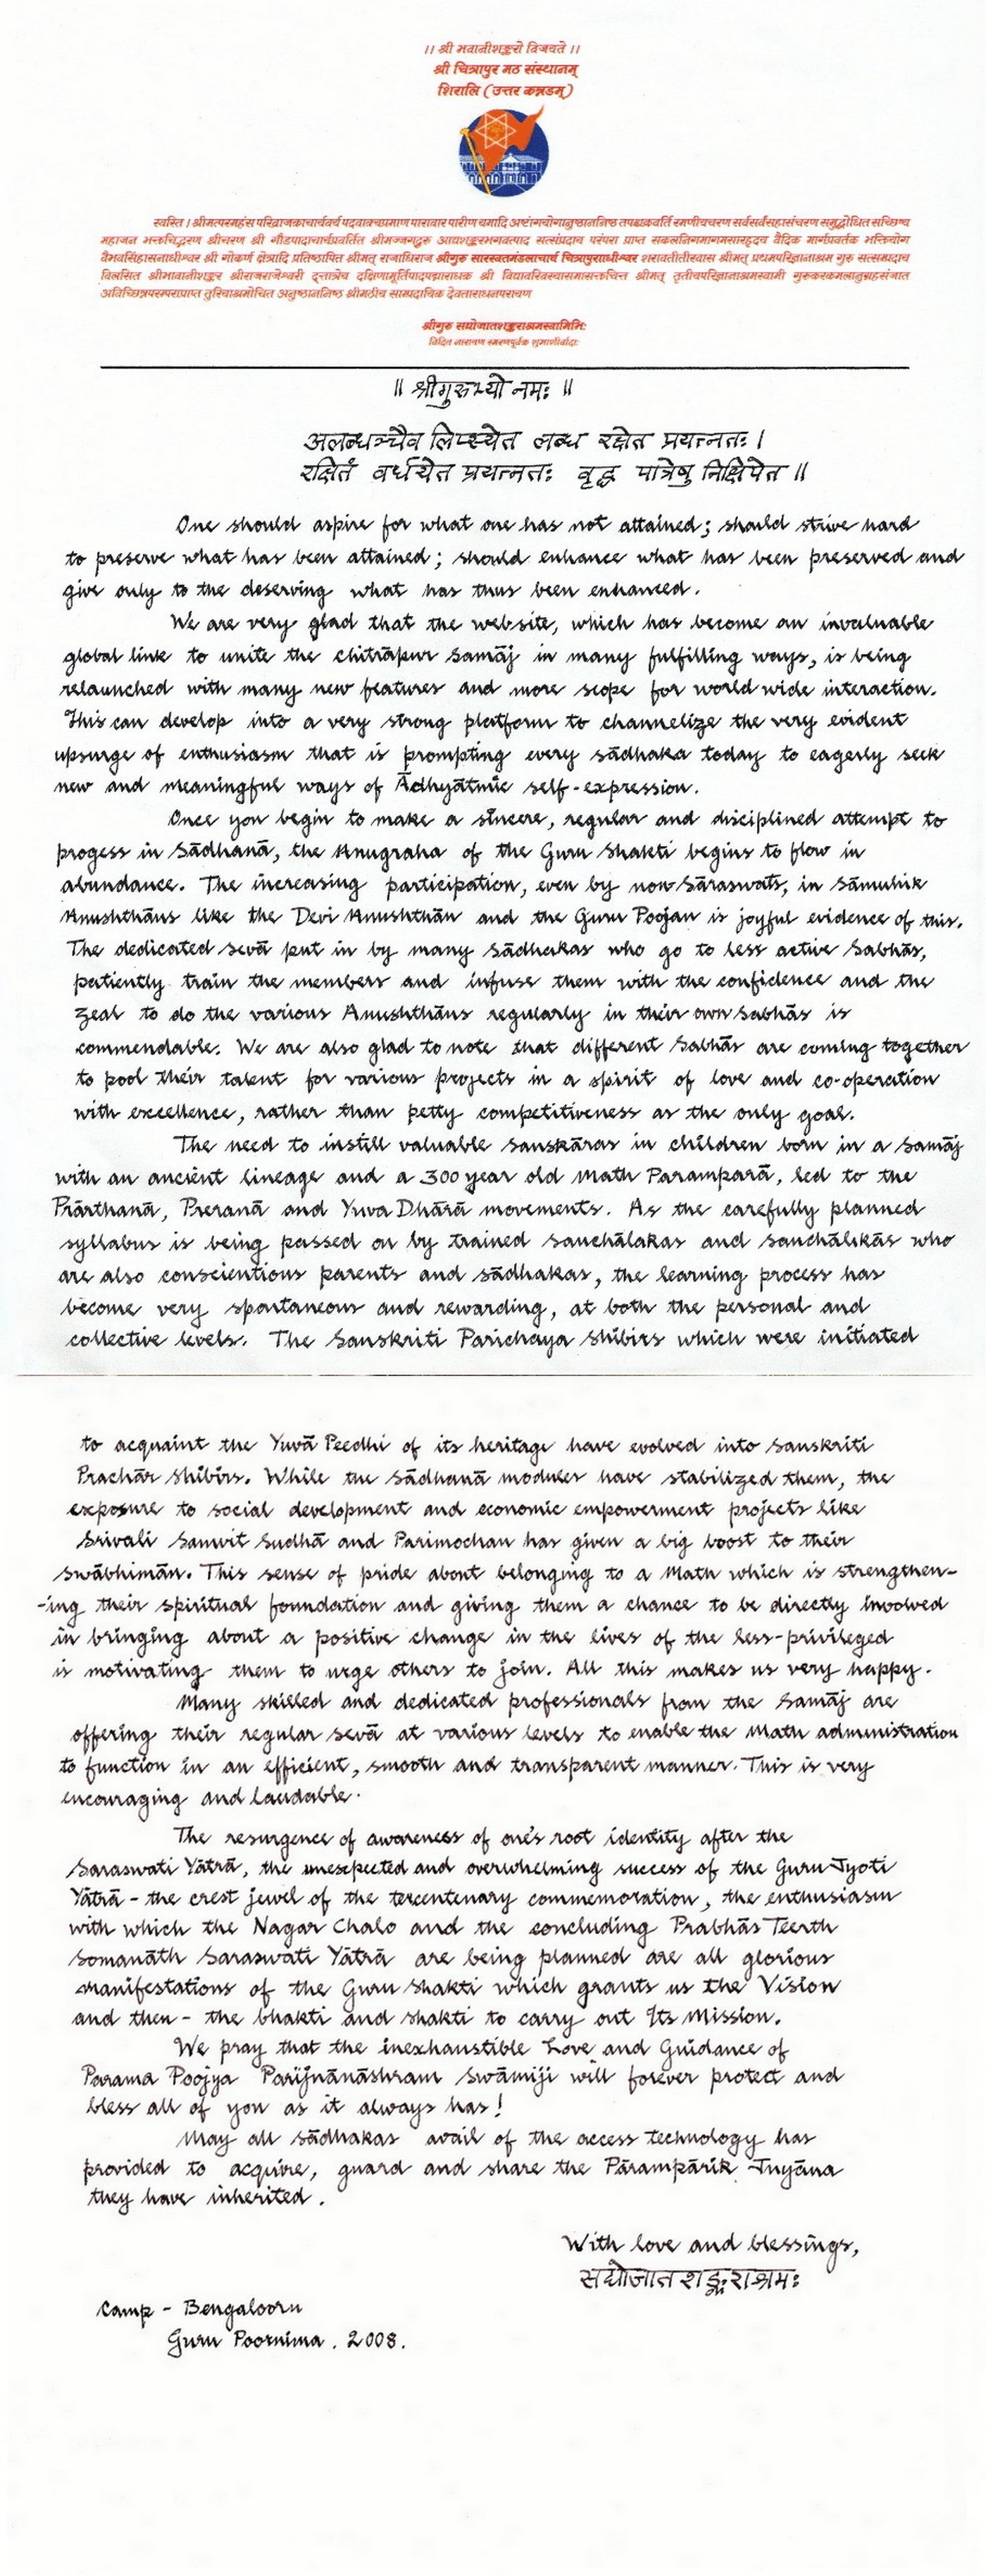 ।। श्री भवानीशङ्करो विजयते ।।
श्री चित्रापुर मठ संस्थानम्
शिरालि (उत्तर कन्नडम्)
स्वस्ति । श्रीमत्परमहंस परिव्राजकाचार्यवर्य पदवाक्यप्रमाण पारावार पारीण यमादि अष्टांगयोगानुष्ठाननिष्ठ तपश्चक्रवर्ति रमणीयचरण सर्वसर्वसहासंचरण समुद्बोधित सच्छिष्य
महाजन भक्तचिद्भरण श्रीचरण श्री गौडपादाचार्यप्रवर्तित श्रीमज्जगद्गुरु आद्यशङ्करभगवत्पाद सत्संप्रदाय परंपरा प्राप्त सकलनिगमागमसारहृदय वैदिक मार्गप्रवर्तक भक्तियोग
वैभवसिंहासनाधीश्वर श्री गोकर्ण क्षेत्रादि प्रतिष्ठापित श्रीमत् राजाधिराज श्रीगुरु सारस्वतमंडलाचार्य चित्रापुराधीश्वर शरावतीतीरवास श्रीमत् प्रथमपरिज्ञानाश्रम गुरु सत्सम्प्रदाय
विलसित श्रीभावानीशङ्कर श्रीराजराजेश्वरी दत्तात्रेय दक्षिणामूर्तिपादपद्माराधक श्री विद्यावरिवस्यासमासक्तचित्त श्रीमत् तृतीयपरिज्ञानाश्रमस्वामी गुरुकरकमलानुग्रहसंजात
अविच्छिन्नपरम्पराप्राप्त तुरियाश्रमोचित अनुष्ठाननिष्ठ श्रीमठीय साम्प्रदायिक देवताराधनपरायण
श्रीगुरु सद्योजातशङ्कराश्रमस्वामिभिः
विदित नारायण स्मरणपूर्वक शुभाशीर्वादाः
॥ श्रीगुरुभ्यो नमः ॥
अलब्धञ्चैव लिप्स्येत लब्ध रक्षेत प्रयत्नतः ।
रक्षितं वर्धयेत प्रयत्नतः वृद्ध पात्रेषु निक्षिपेत ॥
One should aspire for what one has not attained; should strive hard
to preserve what has been attained; should enhance what has been preserved and
give only to the deserving what has thus been enhanced.
We are very glad that the website, which has become an invaluable
global link to unite the Chitrāpur Samāj in many fulfilling ways, is being
relaunched with many new features and more scope for world wide interaction.
This can develop into a very strong platform to channelize the very evident
upsurge of enthusiasm that is prompting every sādhaka today to eagerly seek
new and meaningful ways of Ādhyātmic self-expression.
Once you begin to make a sincere, regular and disciplined attempt to
progess in Sādhanā, the Anugraha of the Guru Shakti begins to flow in
abundance. The increasing participation, even by non Sāraswats, in Sāmuhik
Anushthāns like the Devi Anushthān and the Guru Poojan is joyful evidence of this.
The dedicated sevā put in by many sādhakas who go to less active Sabhās,
patiently train the members and infuse them with the confidence and the
zeal to do the various Anushthāns regularly in their own Sabhās is
commendable. We are also glad to note that different Sabhās are coming together
to pool their talent for various projects in a spirit of love and co-operation
with excellence, rather than petty competitiveness as the only goal.
The need to instill valuable sanskāras in children born in a Samāj
with an ancient lineage and a 300 year old Math Paramparā, led to the
Prārthanā, Preranā and Yuva Dhārā movements. As the carefully planned
syllabus is being passed on by trained sanchālakas and sanchālikās who
are also conscientious parents and sādhakas, the learning process has
become very spontaneous and rewarding, at both the personal and
collective levels. The Sanskriti Parichaya Shibirs which were initiated
to acquaint the Yuvā Peedhi of its heritage have evolved into Sanskriti
Prachār Shibirs. While the Sādhanā modules have stabilized them, the
exposure to social development and economic empowerment projects like
Srivali Samvit Sudhā and Parimochan has given a big boost to their
swābhimān. This sense of pride about belonging to a Math which is strengthen-
-ing their spiritual foundation and giving them a chance to be directly involved
in bringing about a positive change in the lives of the less-privileged
is motivating them to urge others to join. All this makes us very happy.
Many skilled and dedicated professionals from the Samāj are
offering their regular sevā at various levels to enable the Math administration
to function in an efficient, smooth and transparent manner. This is very
encouraging and laudable.
The resurgence of awareness of one's root identity after the
Saraswati Yātrā, the unexpected and overwhelming success of the Guru Jyoti
Yātrā - the crest jewel of the tercentenary commemoration, the enthusiasm
with which the Nagar Chalo and the concluding Prabhās Teerth
Somanāth Saraswati Yātrā are being planned are all glorious
manifestations of the Guru Shakti which grants us the Vision
and then - the bhakti and shakti to carry out Its Mission.
We pray that the inexhaustible Love and Guidance of
Parama Poojya Parijnānāshram Swāmiji will forever protect and
bless all of you as it always has!
May all sādhakas avail of the access technology has
provided to acquire, guard and share the Pārampārik Jnyāna
they have inherited.
With love and blessings,
सद्योजात शङ्कराश्रमः
Camp - Bengalooru
Guru Poornima. 2008.